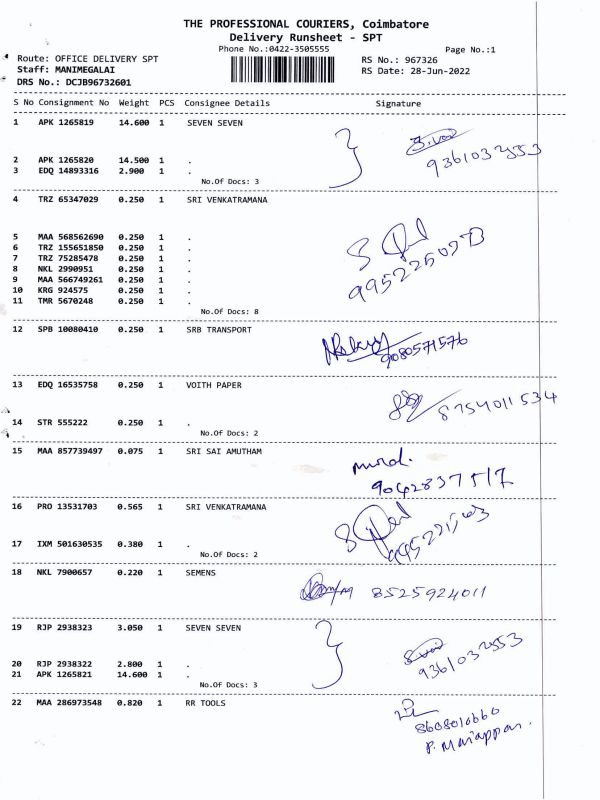 THE PROFESSIONAL COURIERS, Coimbatore
Delivery Runsheet - SPT
Phone No.:0422-3505555 Page No.:1
Route: OFFICE DELIVERY SPT RS No.: 967326
Staff: MANIMEGALAI RS Date: 28-Jun-2022
DRS No.: DCJB96732601
S No Consignment No Weight PCS Consignee Details Signature
1 APK 1265819 14.600 1 SEVEN SEVEN
2 APK 1265820 14.500 1 .
3 EDQ 14893316 2.900 1 .
No.Of Docs: 3
4 TRZ 65347029 0.250 1 SRI VENKATRAMANA
5 MAA 568562690 0.250 1 .
6 TRZ 155651850 0.250 1 .
7 TRZ 75285478 0.250 1 .
8 NKL 2990951 0.250 1 .
9 MAA 566749261 0.250 1 .
10 KRG 924575 0.250 1 .
11 TMR 5670248 0.250 1 .
No.Of Docs: 8
12 SPB 10080410 0.250 1 SRB TRANSPORT
9080571576
13 EDQ 16535758 0.250 1 VOITH PAPER
8754011534
14 STR 555222 0.250 1 .
No.Of Docs: 2
15 MAA 857739497 0.075 1 SRI SAI AMUTHAM
9042837517
16 PRO 13531703 0.565 1 SRI VENKATRAMANA
17 IXM 501630535 0.380 1 .
No.Of Docs: 2
18 NKL 7900657 0.220 1 SEMENS
8525924011
19 RJP 2938323 3.050 1 SEVEN SEVEN
20 RJP 2938322 2.800 1 .
21 APK 1265821 14.600 1 .
No.Of Docs: 3
22 MAA 286973548 0.820 1 RR TOOLS
8608010660
P. Mariappan.